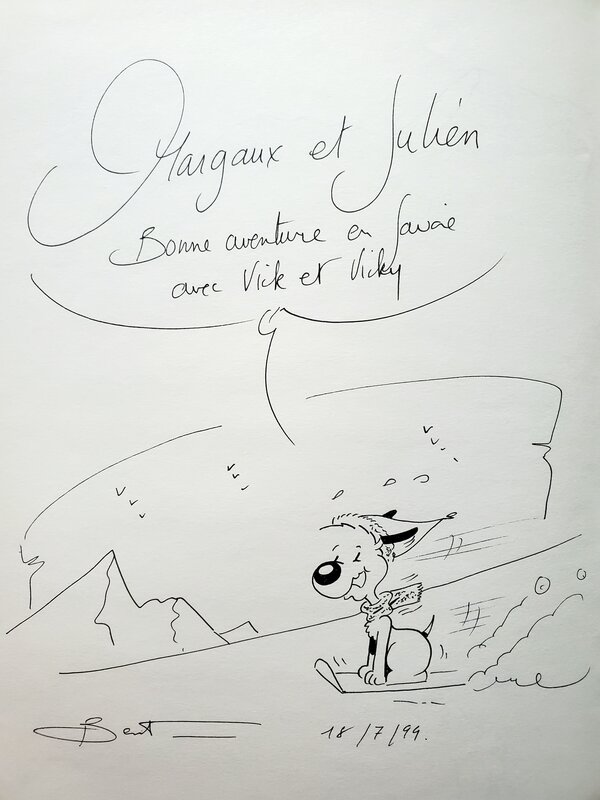 Margaux et Julien
Bonne aventure en Savoie
avec Vick et Vicky
18/7/99.